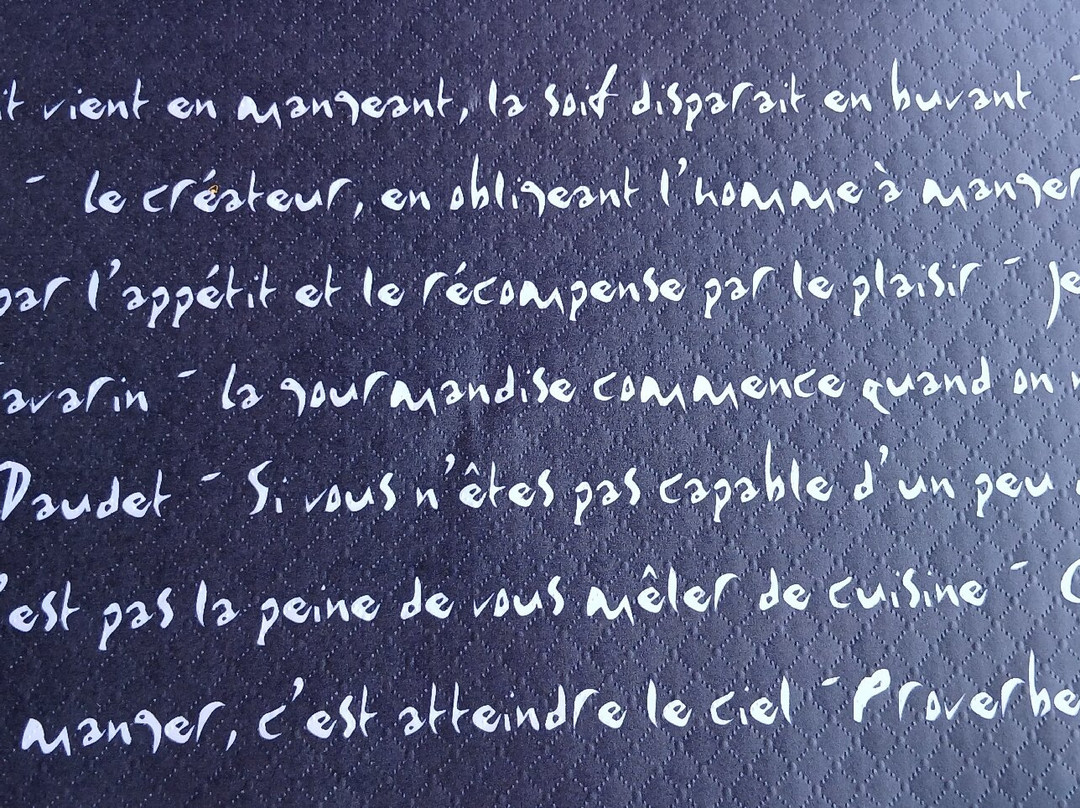 it vient en mangeant, la soif disparait en buvant -
- le créateur, en obligeant l'homme à manger
par l'appétit et le récompense par le plaisir - Je
avarin - la gourmandise commence quand on
Daudet - Si vous n'êtes pas capable d'un peu
'est pas la peine de vous mêler de cuisine - C
manger, c'est atteindre le ciel - Proverbe